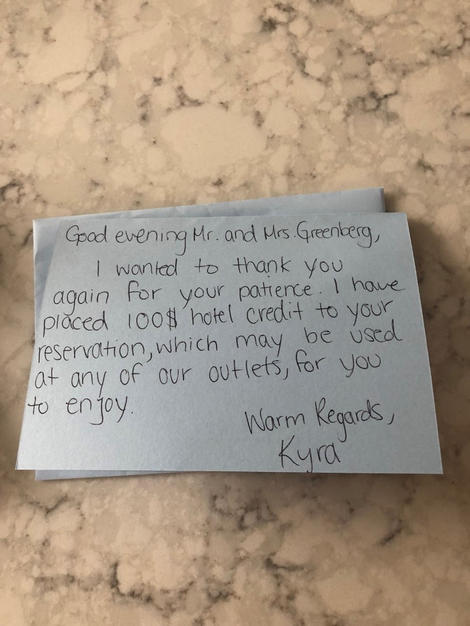 Good evening Mr. and Mrs. Greenberg,
I wanted to thank you
again for your patience. I have
placed 100$ hotel credit to your
reservation, which may be used
at any of our outlets, for you
to enjoy.
Warm Regards,
Kyra